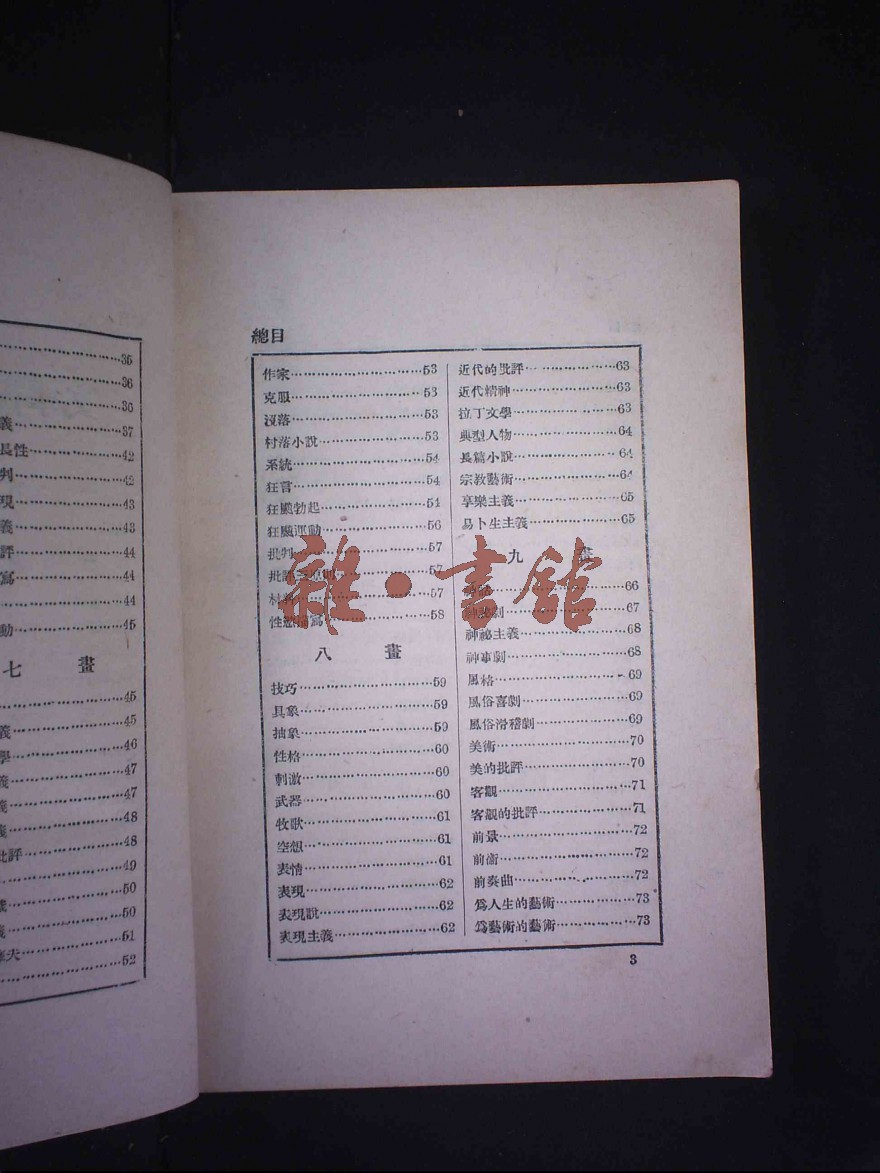 35
36
36
義 37
長性 42
判 42
現 43
義 43
評 44
寫 44
44
動 45
七 畫
45
義 45
學 46
義 47
義 47
義 48
批評 48
49
50
義 50
夫 51
52
總目
作家 53
克服 53
沒落 53
村落小說 53
系統 54
狂言 54
狂飈勃起 54
狂飈運動 56
批判 57
批評 原則 57
材料 57
性慾描寫 58
八 畫
技巧 59
具象 59
抽象 59
性格 60
刺激 60
武器 60
牧歌 61
空想 61
表情 61
表現 62
表現說 62
表現主義 62
近代的批評 63
近代精神 63
拉丁文學 63
典型人物 64
長篇小說 64
宗教藝術 64
享樂主義 65
易卜生主義 65
九 畫
66
神祕劇 67
神祕主義 68
神事劇 68
風格 69
風俗喜劇 69
風俗滑稽劇 69
美術 70
美的批評 70
客觀 71
客觀的批評 71
前景 72
前衞 72
前奏曲 72
爲人生的藝術 73
爲藝術的藝術 73
3
雜·書館